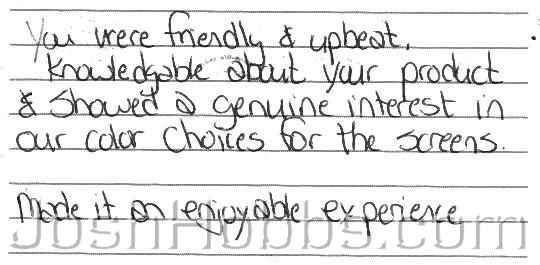 You were friendly & upbeat,
Knowledgable about your product
& Showed a genuine interest in
our color choices for the screens.
Made it an enjoyable experience
JoshHobbs.com